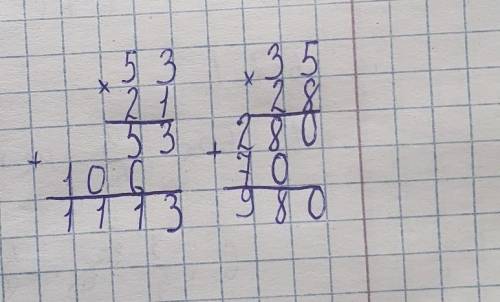 53
× 21
53
+ 106
1113
35
× 28
280
+ 70
980